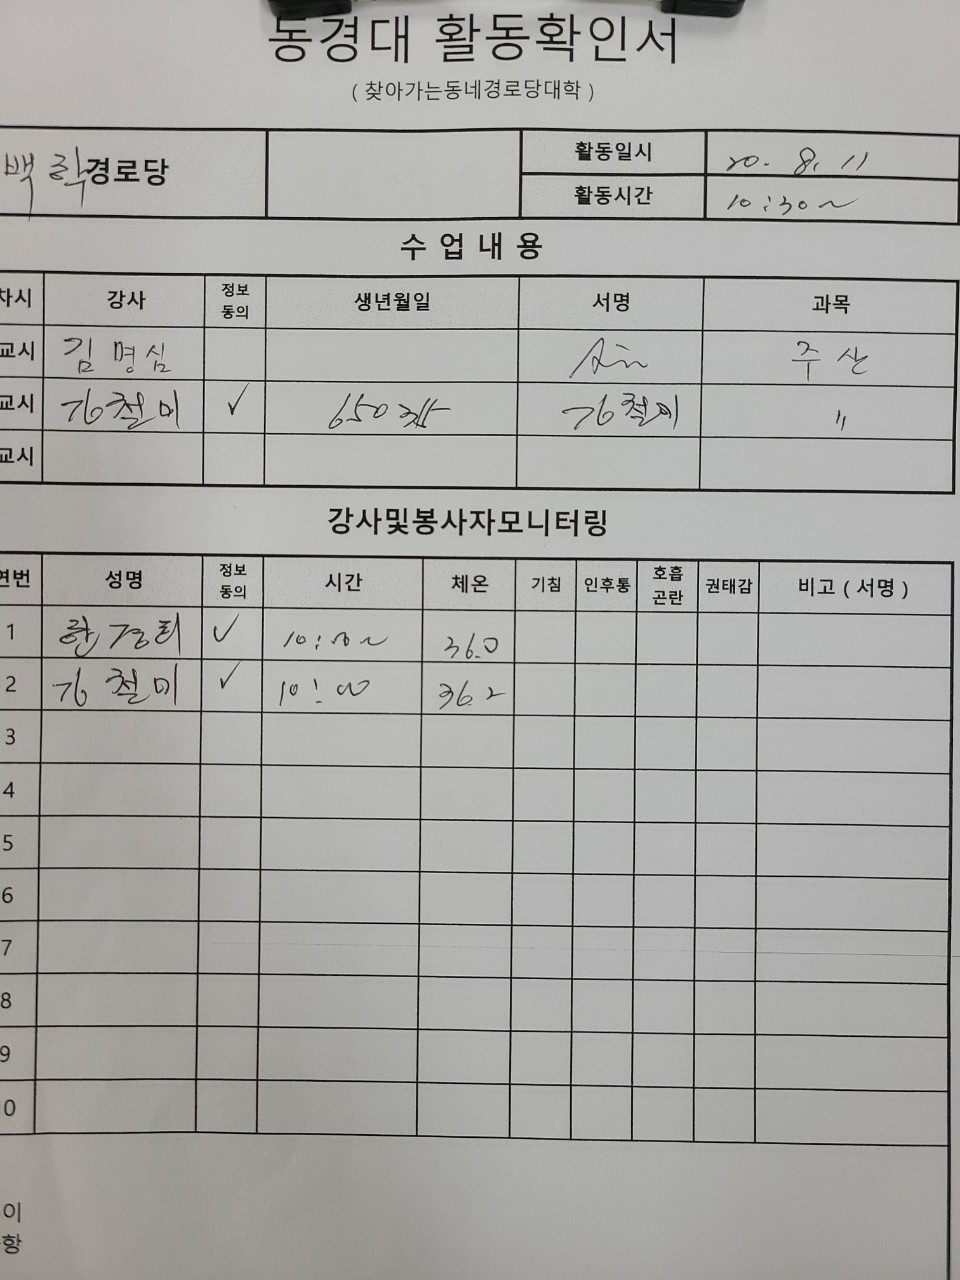 동경대 활동확인서
( 찾아가는동네경로당대학 )
백학경로당 활동일시 20. 8. 11
활동시간 10:30~
수 업 내 용
차시 강사 정보동의 생년월일 서명 과목
교시 김명심 주산
교시 강철미 ✓ 강철미 〃
교시
강사및봉사자모니터링
연번 성명 정보동의 시간 체온 기침 인후통 호흡곤란 권태감 비고 ( 서명 )
1 ✓ 36.0
2 강철미 ✓ 10:00 36.2
3
4
5
6
7
8
9
10
이
항